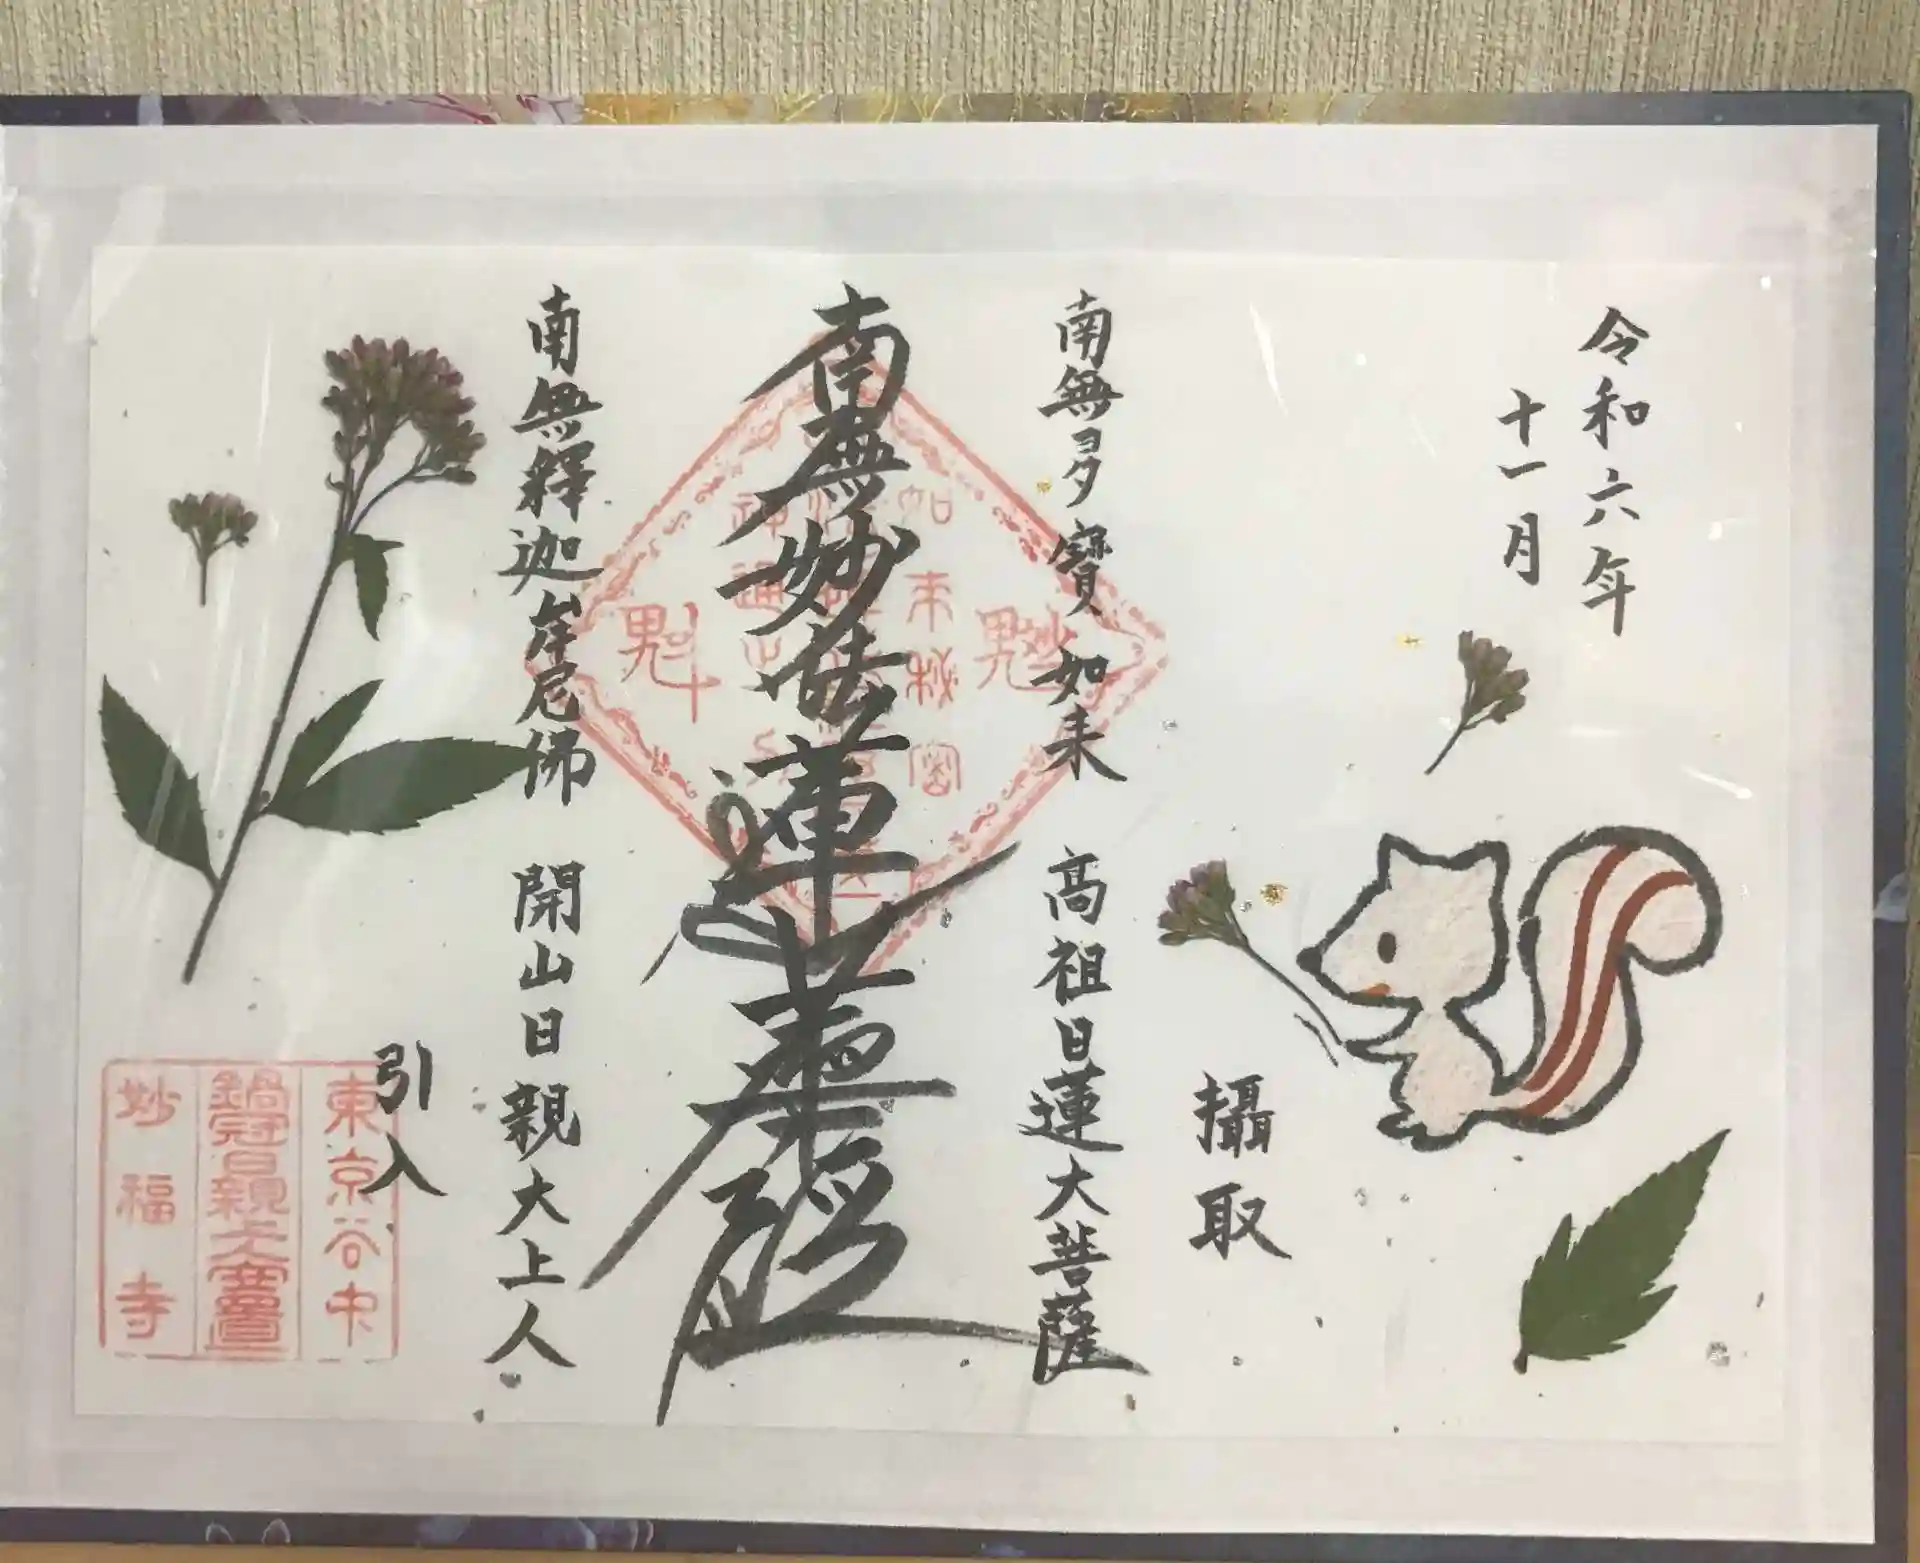 令和六年
十一月
攝取
南無多寶如来 高祖日蓮大菩薩
南無妙法蓮華経
南無釋迦牟尼佛 開山日親大上人
引入
如来秘密
神通之力
東京谷中
妙福寺